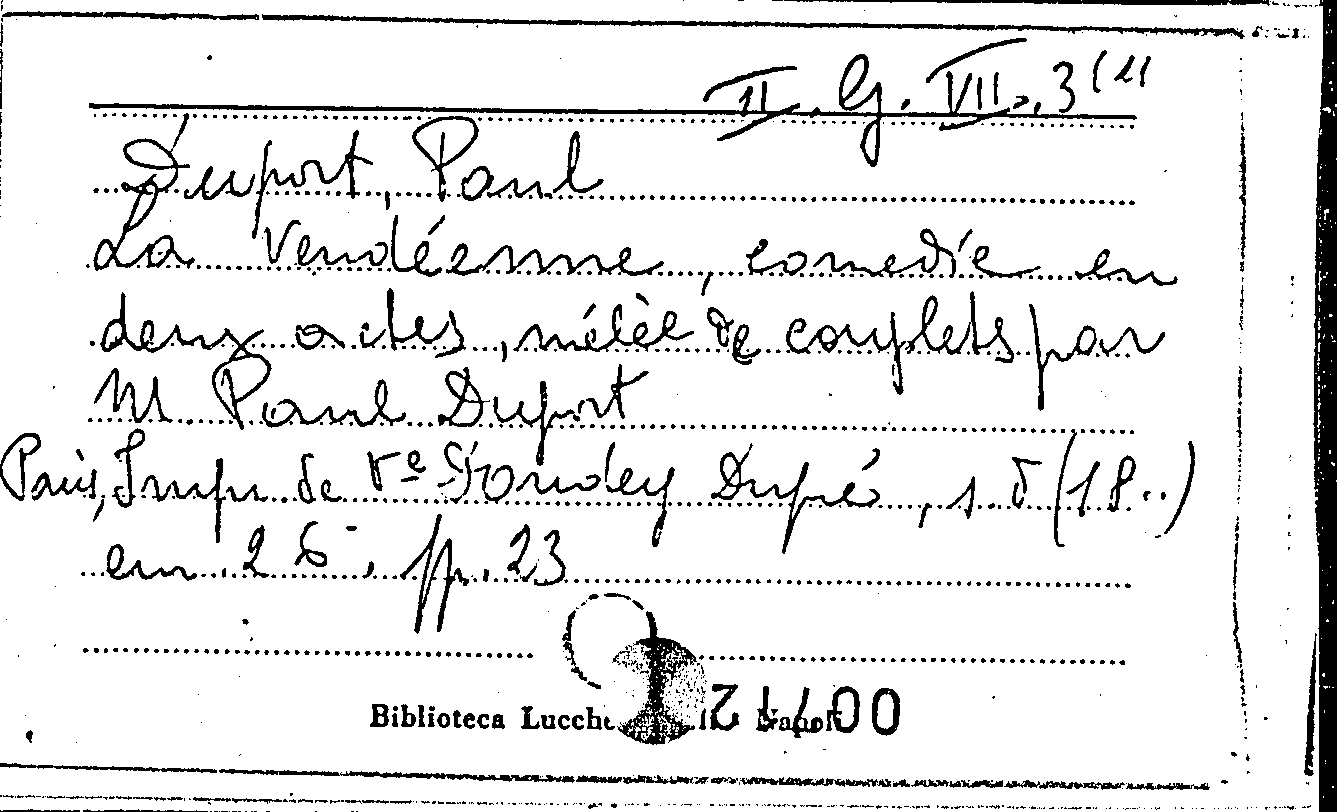 II. G. VII. 3(11
Duport, Paul
La Vendéenne, comedíe en
deux actes, mélèe de couplets par
M Paul Duport
Paris, Impr. de Vᵉ Dondey Dupré, s. d (18..)
cm. 26. pp. 23
Biblioteca Lucche Napoli